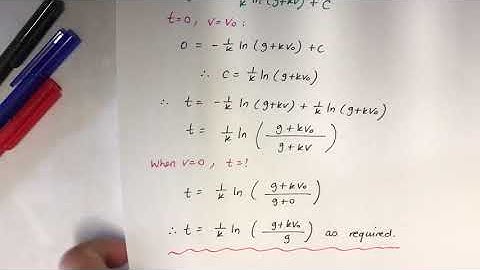 1/k ln (g+kv) + C
t=0, v=v₀ :
0 = -1/k ln (g+kv₀) + C
∴ C = 1/k ln (g+kv₀)
∴ t = -1/k ln (g+kv) + 1/k ln (g+kv₀)
t = 1/k ln ( g+kv₀ / g+kv )
When v=0, t=!
t = 1/k ln ( g+kv₀ / g+0 )
∴ t = 1/k ln ( g+kv₀ / g ) as required.